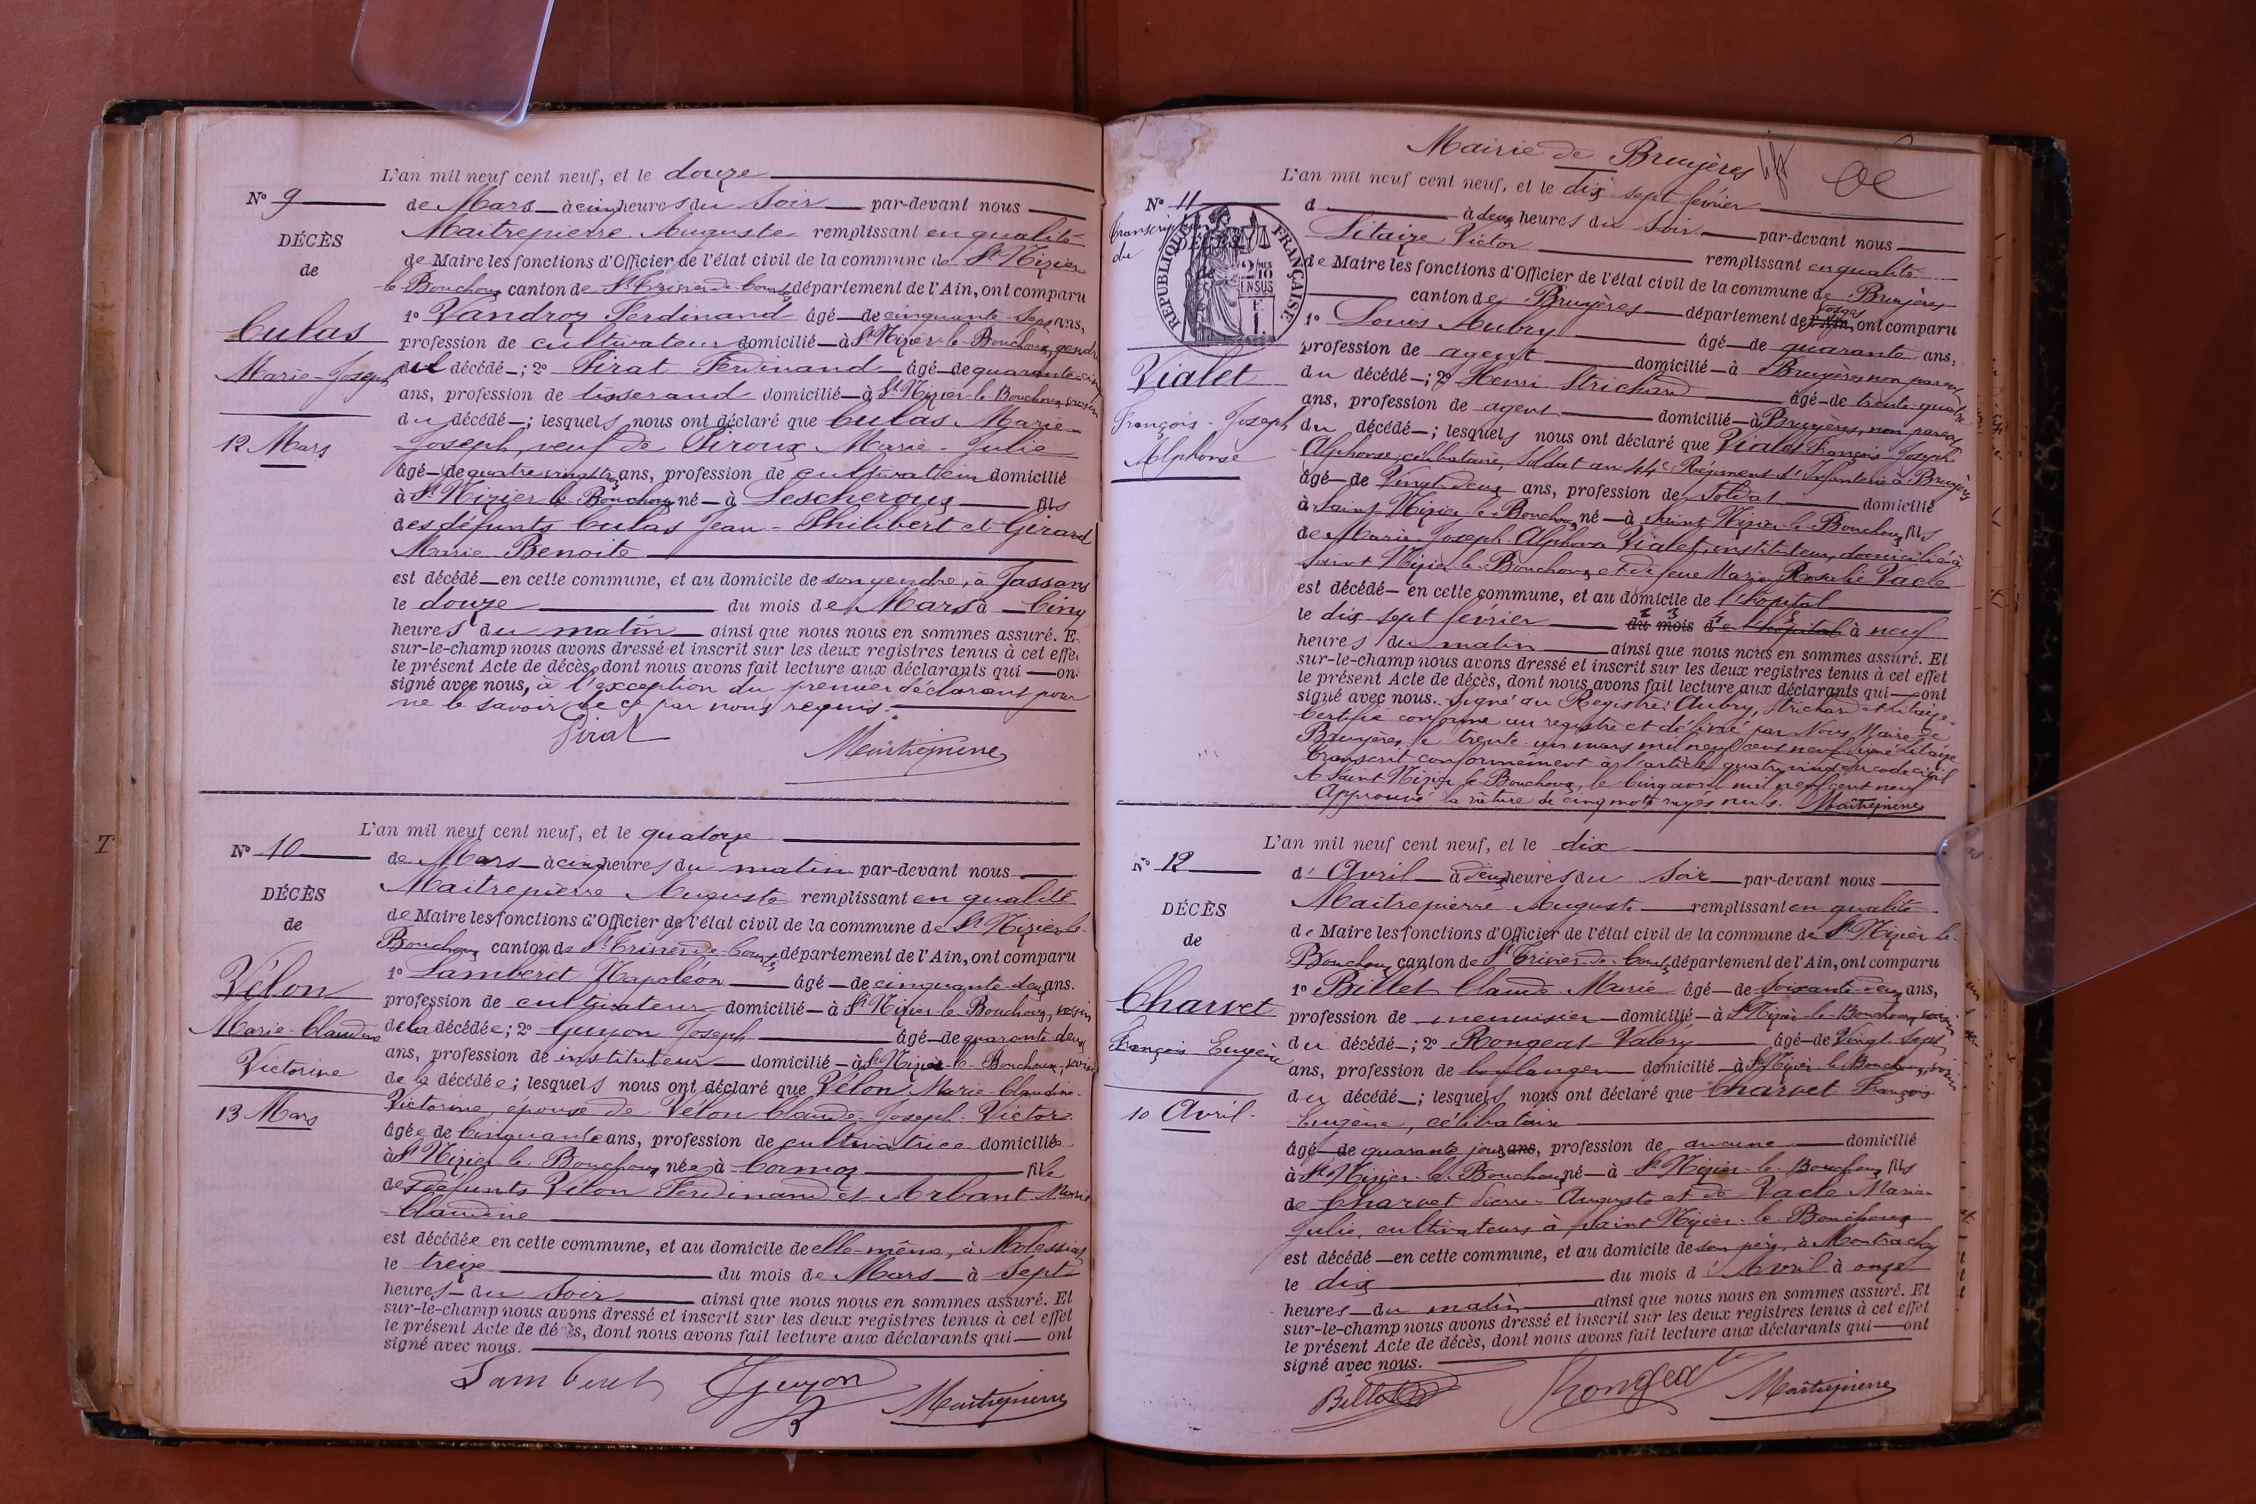 L'an mil neuf cent neuf, et le douze
N° 9
de Mars à cinq heures du Soir par-devant nous
Maitrepierre Auguste remplissant en qualité
DÉCÈS
de Maire les fonctions d'Officier de l'état civil de la commune de St Nizier
de
le Bouchoux canton de St Trivier de Courtes département de l'Ain, ont comparu
1° Vandroz Ferdinand âgé de cinquante sept ans,
Culas
profession de cultivateur domicilié à St Nizier le Bouchoux, gendre
Marie-Joseph
du décédé; 2° Pirat Ferdinand âgé de quarante cinq
ans, profession de tisserand domicilié à St Nizier le Bouchoux, voisin
du décédé; lesquels nous ont déclaré que Culas Marie
12 Mars
Joseph, veuf de Piroux Marie-Julie
âgé de quatre vingt ans, profession de cultivateur domicilié
à St Nizier le Bouchoux né à Lescheroux fils
des défunts Culas Jean-Philibert et Gérard
Marie Benoite
est décédé en cette commune, et au domicile de son gendre, à Jassans
le douze du mois de Mars à Cinq
heures du matin ainsi que nous nous en sommes assuré. E
sur-le-champ nous avons dressé et inscrit sur les deux registres tenus à cet effe
le présent Acte de décès, dont nous avons fait lecture aux déclarants qui on
signé avec nous, à l'exception du premier déclarant pour
ne le savoir de ce par nous requis.
Pirat
Maitrepierre
L'an mil neuf cent neuf, et le quatorze
N° 10
de Mars à cinq heures du matin par-devant nous
Maitrepierre Auguste remplissant en qualité
DÉCÈS
de Maire les fonctions d'Officier de l'état civil de la commune de St Nizier le
de
Bouchoux canton de St Trivier de Courtes département de l'Ain, ont comparu
1° Lamberet Napoléon âgé de cinquante deux ans.
Vélon
profession de cultivateur domicilié à St Nizier le Bouchoux, voisin
Marie-Claudine
de la décédée; 2° Guyon Joseph âgé de quarante deux
Victorine
ans, profession de instituteur domicilié à St Nizier le Bouchoux, voisin
de la décédée; lesquels nous ont déclaré que Vélon Marie-Claudine
13 Mars
Victorine, épouse de Vélon Claude-Joseph-Victor
âgée de Cinquante ans, profession de cultivatrice domiciliée
à St Nizier le Bouchoux née à Cormoz fille
des défunts Vélon Ferdinand et Arbant Marie
Claudine
est décédée en cette commune, et au domicile de elle-même, à Molessiat
le treize du mois de Mars à Sept
heures du Soir ainsi que nous nous en sommes assuré. Et
sur-le-champ nous avons dressé et inscrit sur les deux registres tenus à cet effet
le présent Acte de décès, dont nous avons fait lecture aux déclarants qui ont
signé avec nous.
Lamberet
Guyon
Maitrepierre
Mairie de Bruyères
L'an mil neuf cent neuf, et le dix sept février
N° 11
d à deux heures du Soir par-devant nous
Transcript
du
DÉCÈS
de
RÉPUBLIQUE FRANÇAISE
2/10 EN SUS
Litaize Victor remplissant en qualité
de Maire les fonctions d'Officier de l'état civil de la commune de Bruyères
canton de Bruyères département de l'Ain Vosges, ont comparu
1° Louis Aubry âgé de quarante ans,
Vialet
profession de agent domicilié à Bruyères non parent
du décédé; 2° Henri Strichard âgé de trente quatre
François-Joseph
ans, profession de agent domicilié à Bruyères, non parent
Alphonse
du décédé; lesquels nous ont déclaré que Vialet François-Joseph
Alphonse, célibataire, Soldat au 44e Régiment d'Infanterie à Bruyères
âgé de Vingt-deux ans, profession de Soldat domicilié
à Saint Nizier le Bouchoux né à Saint Nizier le Bouchoux fils
de Marie Joseph Alphonse Vialet, instituteur, domicilié à
Saint Nizier le Bouchoux et de feue Marie Rosalie Vacle
est décédé en cette commune, et au domicile de l'hôpital
le dix sept février du mois de l'hôpital à neuf
heures du matin ainsi que nous nous en sommes assuré. Et
sur-le-champ nous avons dressé et inscrit sur les deux registres tenus à cet effet
le présent Acte de décès, dont nous avons fait lecture aux déclarants qui ont
signé avec nous. Signé au Registre: Aubry, Strichard et Litaize.
Certifié conforme au registre et délivré par Nous, Maire de
Bruyères, le trente un mars mil neuf cent neuf signé Litaize
Transcrit conformément à l'article quatre vingt du code civil
A Saint Nizier le Bouchoux, le Cinq avril mil neuf cent neuf
Approuvé la rature de cinq mots rayés nuls. Maitrepierre
L'an mil neuf cent neuf, et le dix
N° 12
d'Avril à deux heures du Soir par-devant nous
Maitrepierre Auguste remplissant en qualité
DÉCÈS
de Maire les fonctions d'Officier de l'état civil de la commune de St Nizier le
de
Bouchoux canton de St Trivier de Courtes département de l'Ain, ont comparu
1° Billet Claude Marie âgé de Soixante deux ans,
Charvet
profession de menuisier domicilié à St Nizier le Bouchoux, voisin
François Eugène
du décédé; 2° Rongeat Valéry âgé de Vingt sept
ans, profession de boulanger domicilié à St Nizier le Bouchoux, voisin
du décédé; lesquels nous ont déclaré que Charvet François
10 Avril.
Eugène, célibataire
âgé de quarante jours ans, profession de aucune domicilié
à St Nizier le Bouchoux né à St Nizier le Bouchoux fils
de Charvet Pierre-Auguste et de Vacle Marie
Julie, cultivateurs à Saint Nizier le Bouchoux
est décédé en cette commune, et au domicile de son père, à Montrachy
le dix du mois d'Avril à onze
heures du matin ainsi que nous nous en sommes assuré. Et
sur-le-champ nous avons dressé et inscrit sur les deux registres tenus à cet effet
le présent Acte de décès, dont nous avons fait lecture aux déclarants qui ont
signé avec nous.
Billet
Rongeat
Maitrepierre